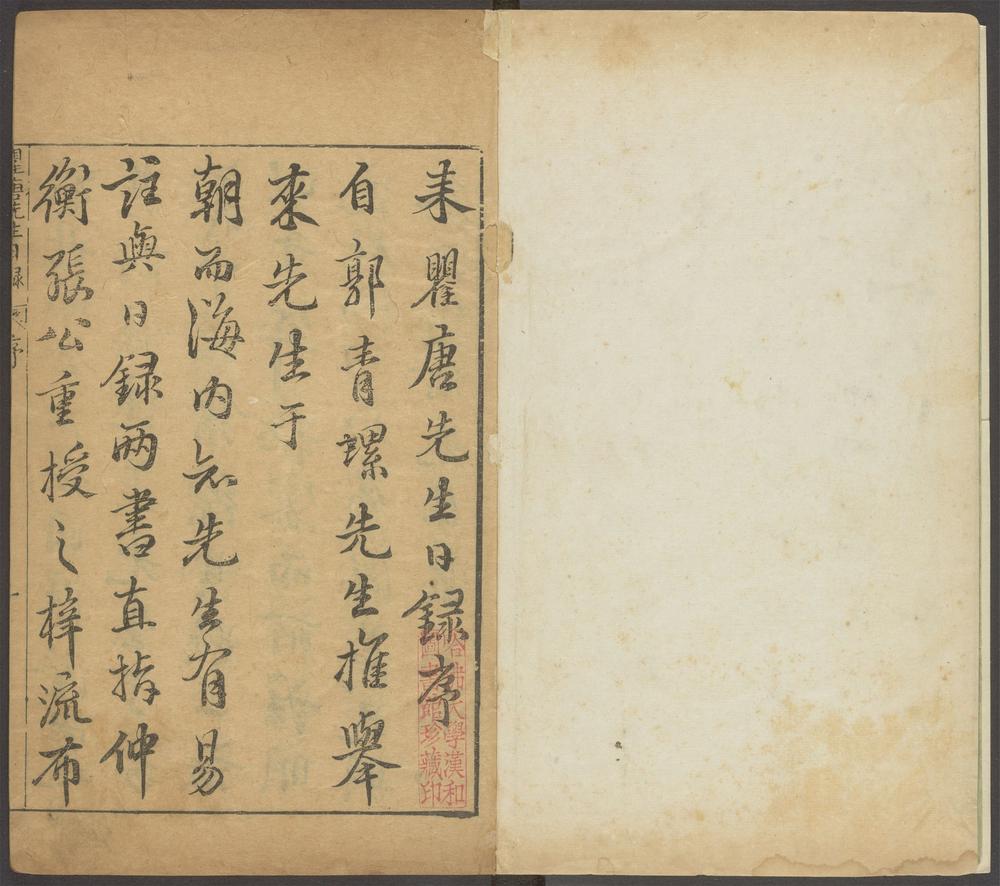 来瞿唐先生日録序
自郭青螺先生推舉
來先生于
朝而海内知先生有易
註與日録兩書直指仲
衡張公重授之梓流布
瞿唐先生日録 序
一
哈佛大學漢和
圖書館珍藏印